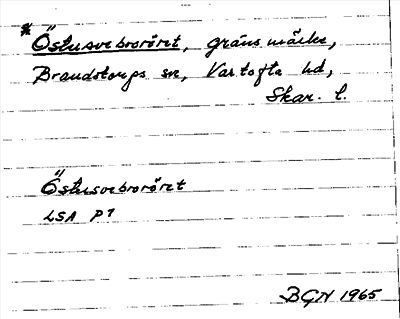 * Östusvebroröret, gränsmärke,
Brandstorps sn, Vartofta hd,
Skar. l.
Östusvebroröret
LSA P7
BGN 1965